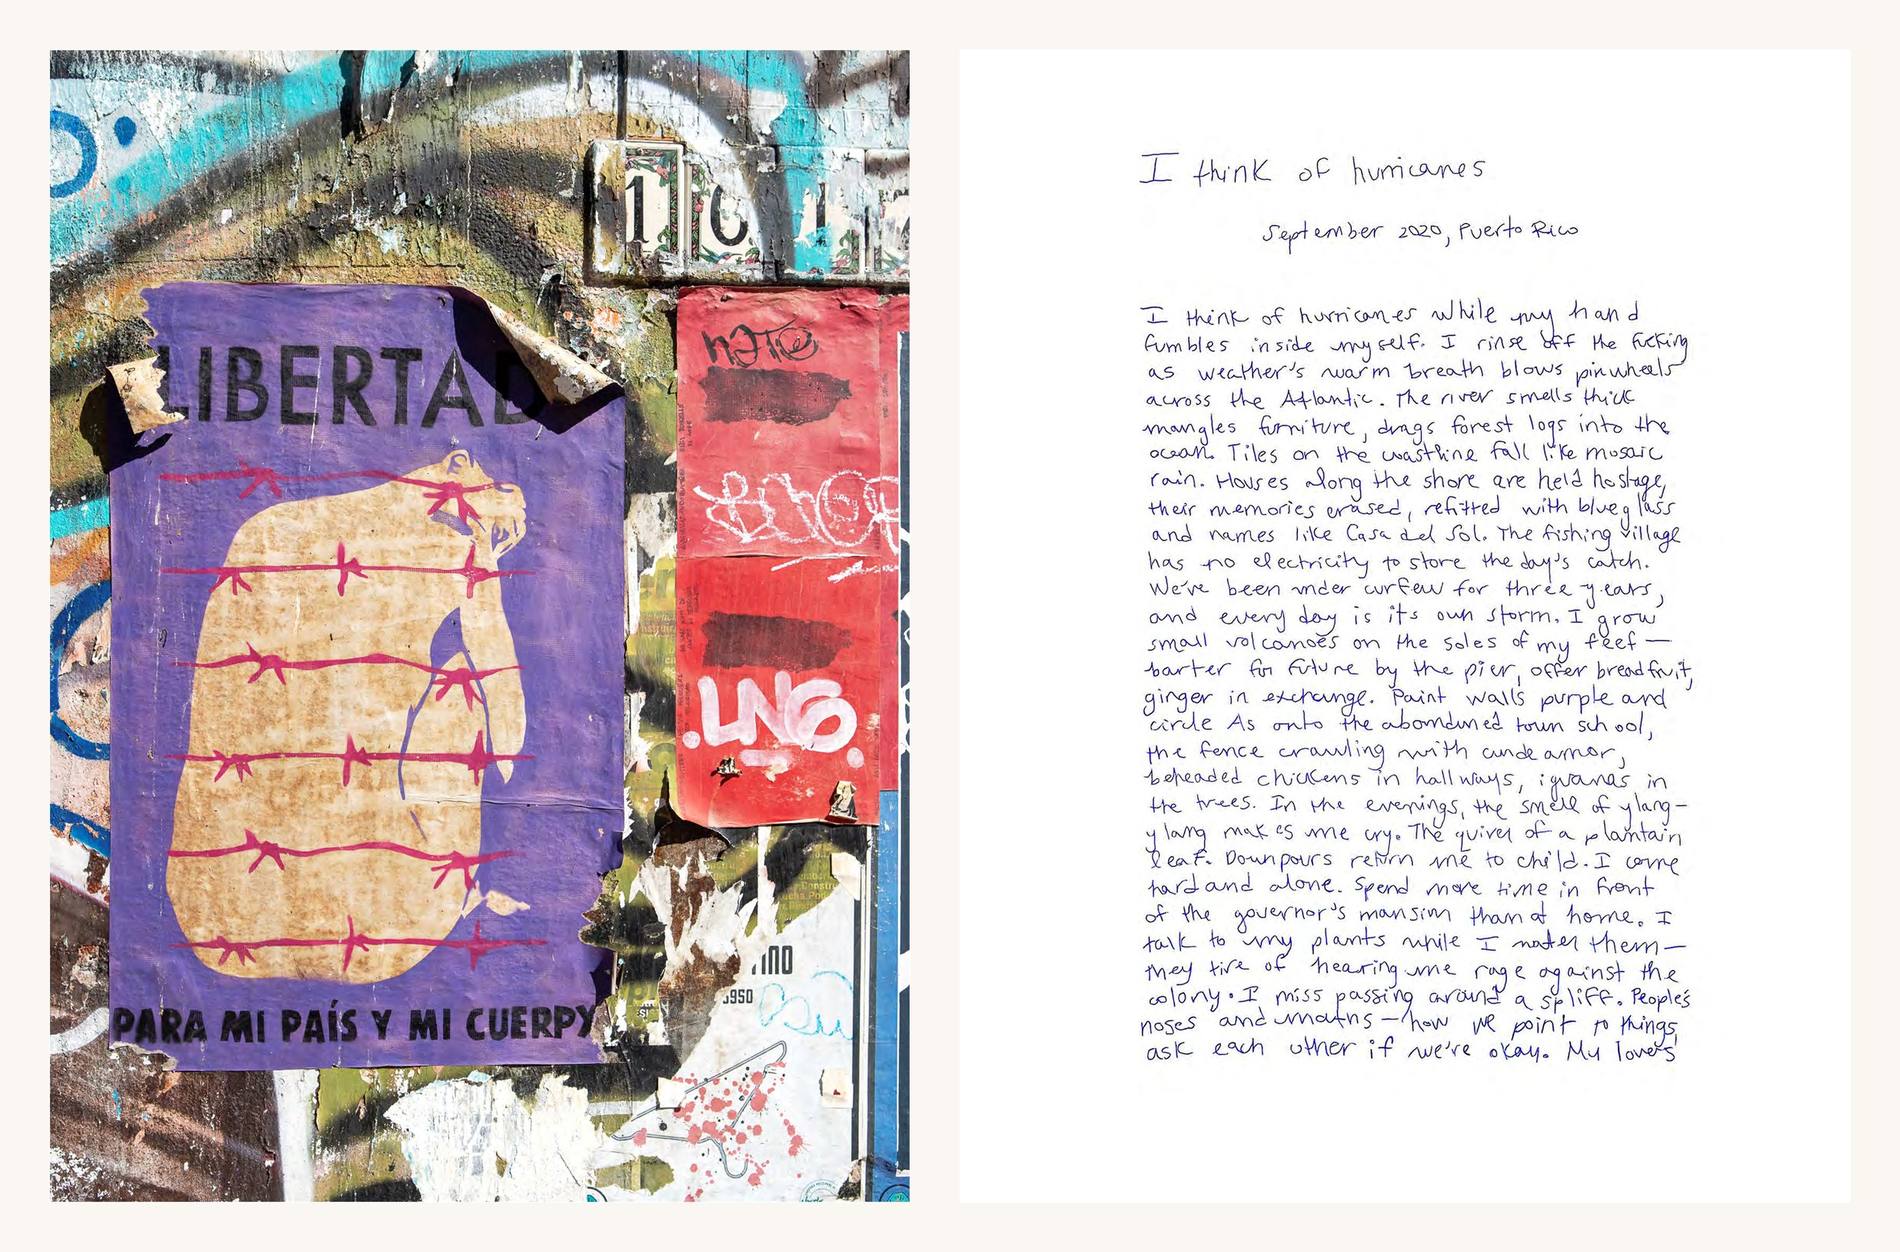 LIBERTAD
PARA MI PAÍS Y MI CUERPY
1
LNG
INO
3950
I think of hurricanes
September 2020, Puerto Rico
I think of hurricanes while my hand
fumbles inside myself. I rinse off the fucking
as weather's warm breath blows pinwheels
across the Atlantic. The river smells thick
mangles furniture, drags forest logs into the
ocean. Tiles on the coastline fall like mosaic
rain. Houses along the shore are held hostage,
their memories erased, refitted with blue glass
and names like Casa del Sol. The fishing village
has no electricity to store the day's catch.
We've been under curfew for three years,
and every day is its own storm. I grow
small volcanoes on the soles of my feet —
barter for future by the pier, offer breadfruit,
ginger in exchange. Paint walls purple and
circle As onto the abandoned town school,
the fence crawling with cundeamor,
beheaded chickens in hallways, iguanas in
the trees. In the evenings, the smell of ylang-
ylang makes me cry. The quiver of a plantain
leaf. Downpours return me to child. I come
hard and alone. Spend more time in front
of the governor's mansion than at home. I
talk to my plants while I water them—
they tire of hearing me rage against the
colony. I miss passing around a spliff. People's
noses and mouths — how we point to things,
ask each other if we're okay. My lover's